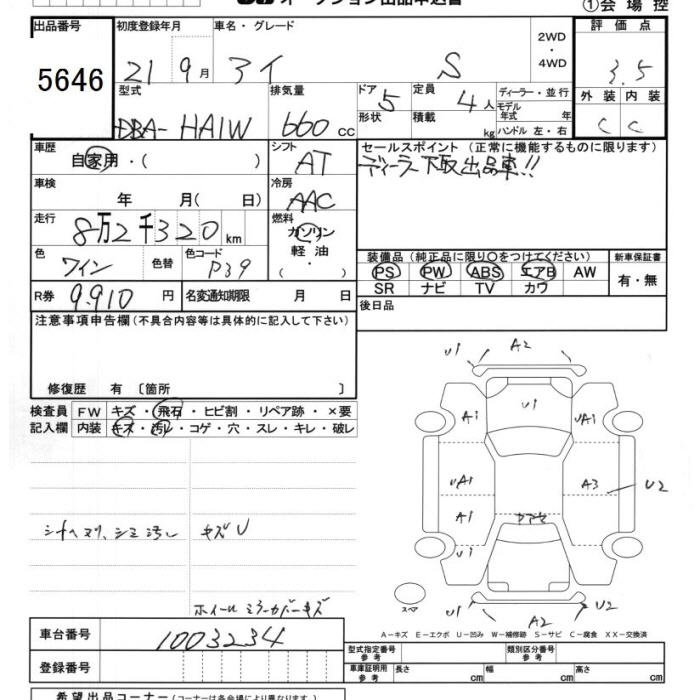 オークション出品申込書
①会場控
出品番号 初度登録年月 車名・グレード 2WD・4WD 評価点
5646 21 9月 アイ S 3.5
型式 排気量 ドア 定員 ディーラー・並行 外装 内装
DBA-HA1W 660cc 5 4人 モデル年式 年 C C
形状 積載 kg ハンドル 左・右
車歴 シフト セールスポイント (正常に機能するものに限ります)
自家用・( ) AT ディーラー下取出品車!!
車検 冷房
年 月( 日) AAC
走行 燃料
8万2千320km ガソリン・軽油・( )
色 色替 色コード 装備品 (純正品に限り○をつけてください) 新車保証書
ワイン P39 PS PW ABS エアB AW 有・無
SR ナビ TV カワ
R券 9,910円 名変通知期限 月 日 後日品
注意事項申告欄 (不具合内容等は具体的に記入して下さい)
修復歴 有 〔箇所 〕
検査員 FW キズ・飛石・ヒビ割・リペア跡・×要
記入欄 内装 キズ・汚レ・コゲ・穴・スレ・キレ・破レ
U1 A2
A1 U1 UA1
UA1 A3 U2
A1
U1
シートヘタリ、シミ汚レ キズU
ホイール ミラーカバーキズ
スペア U1 A2 U2
A−キズ E−エクボ U−凹み W−補修跡 S−サビ C−腐食 XX−交換済
車台番号 1003234
登録番号
型式指定番号 参考 類別区分番号 参考
車庫証明用 参考 長さ cm 幅 cm 高さ cm
希望出品コーナー (コーナーは各会場により異なります。)